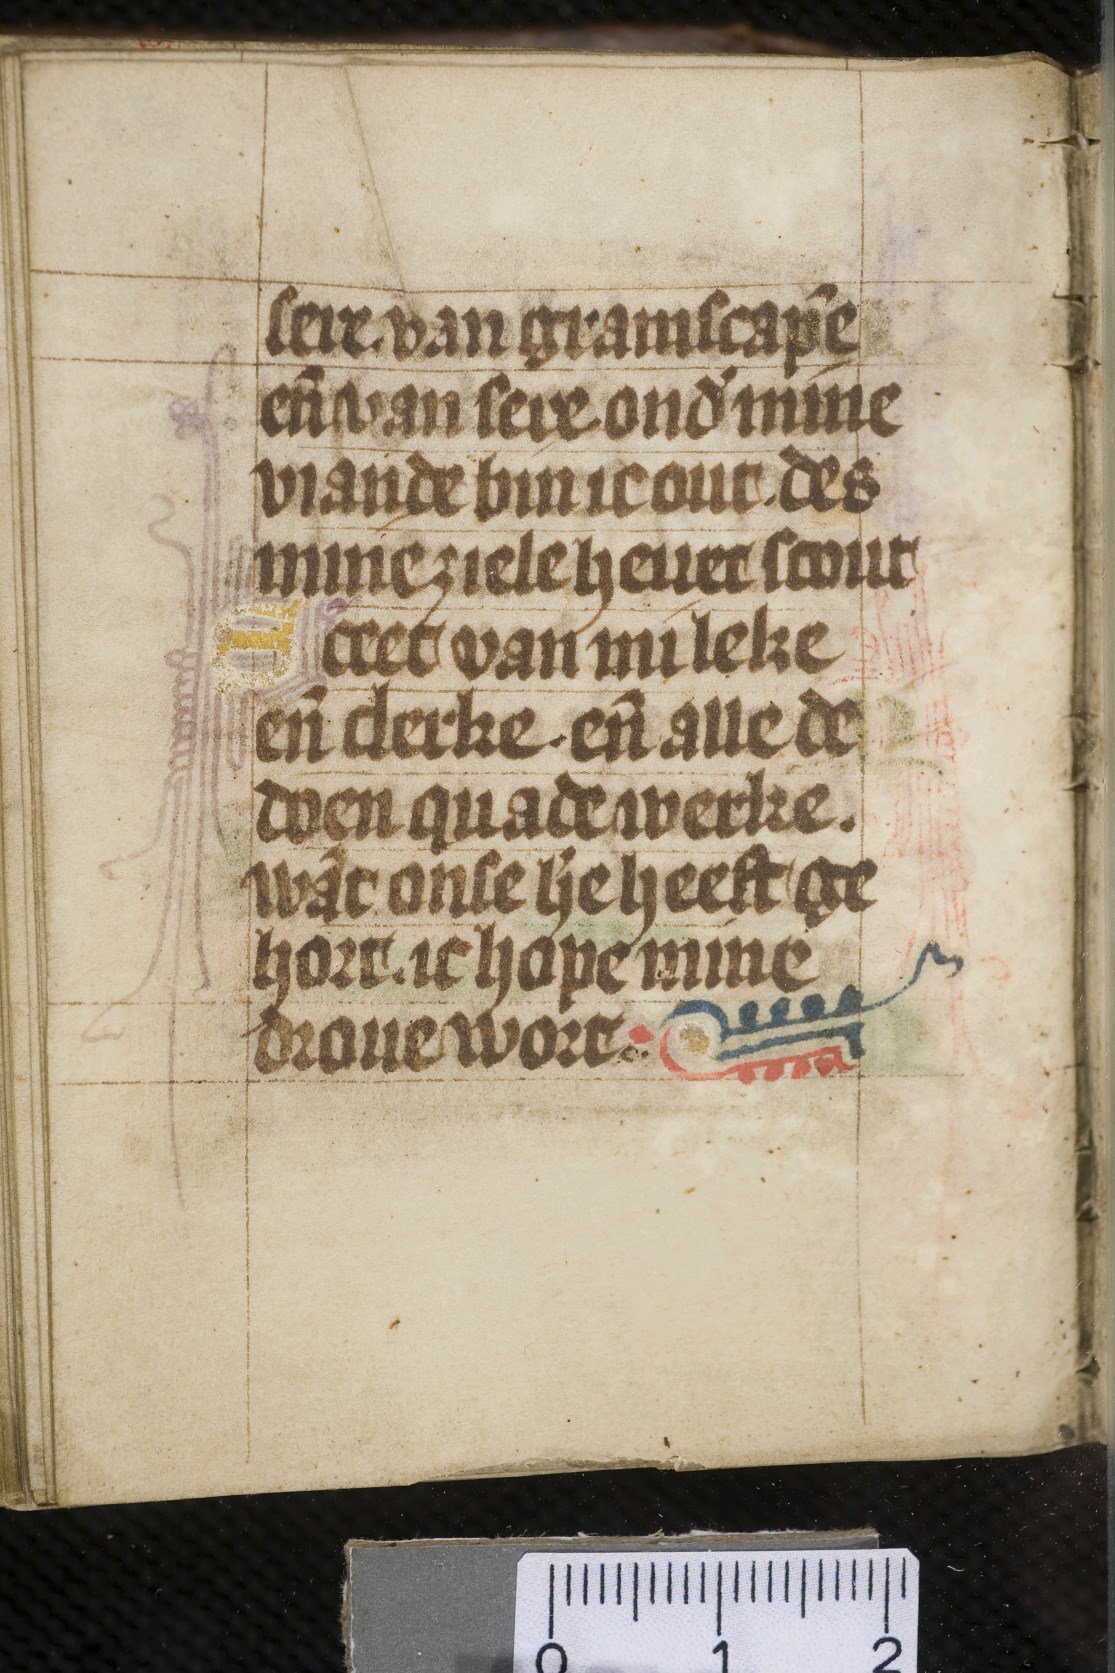 sere. van gramscap̄e
en̄ van sere. ond' mine
viande bin ic out. des
mine ziele heuet scout
Utret van mi leke
en̄ clerke. en̄ alle de
doen quade werke.
wāt onse h̄e heeft ge
hort. ic hope mine
droue wort.
0 1 2